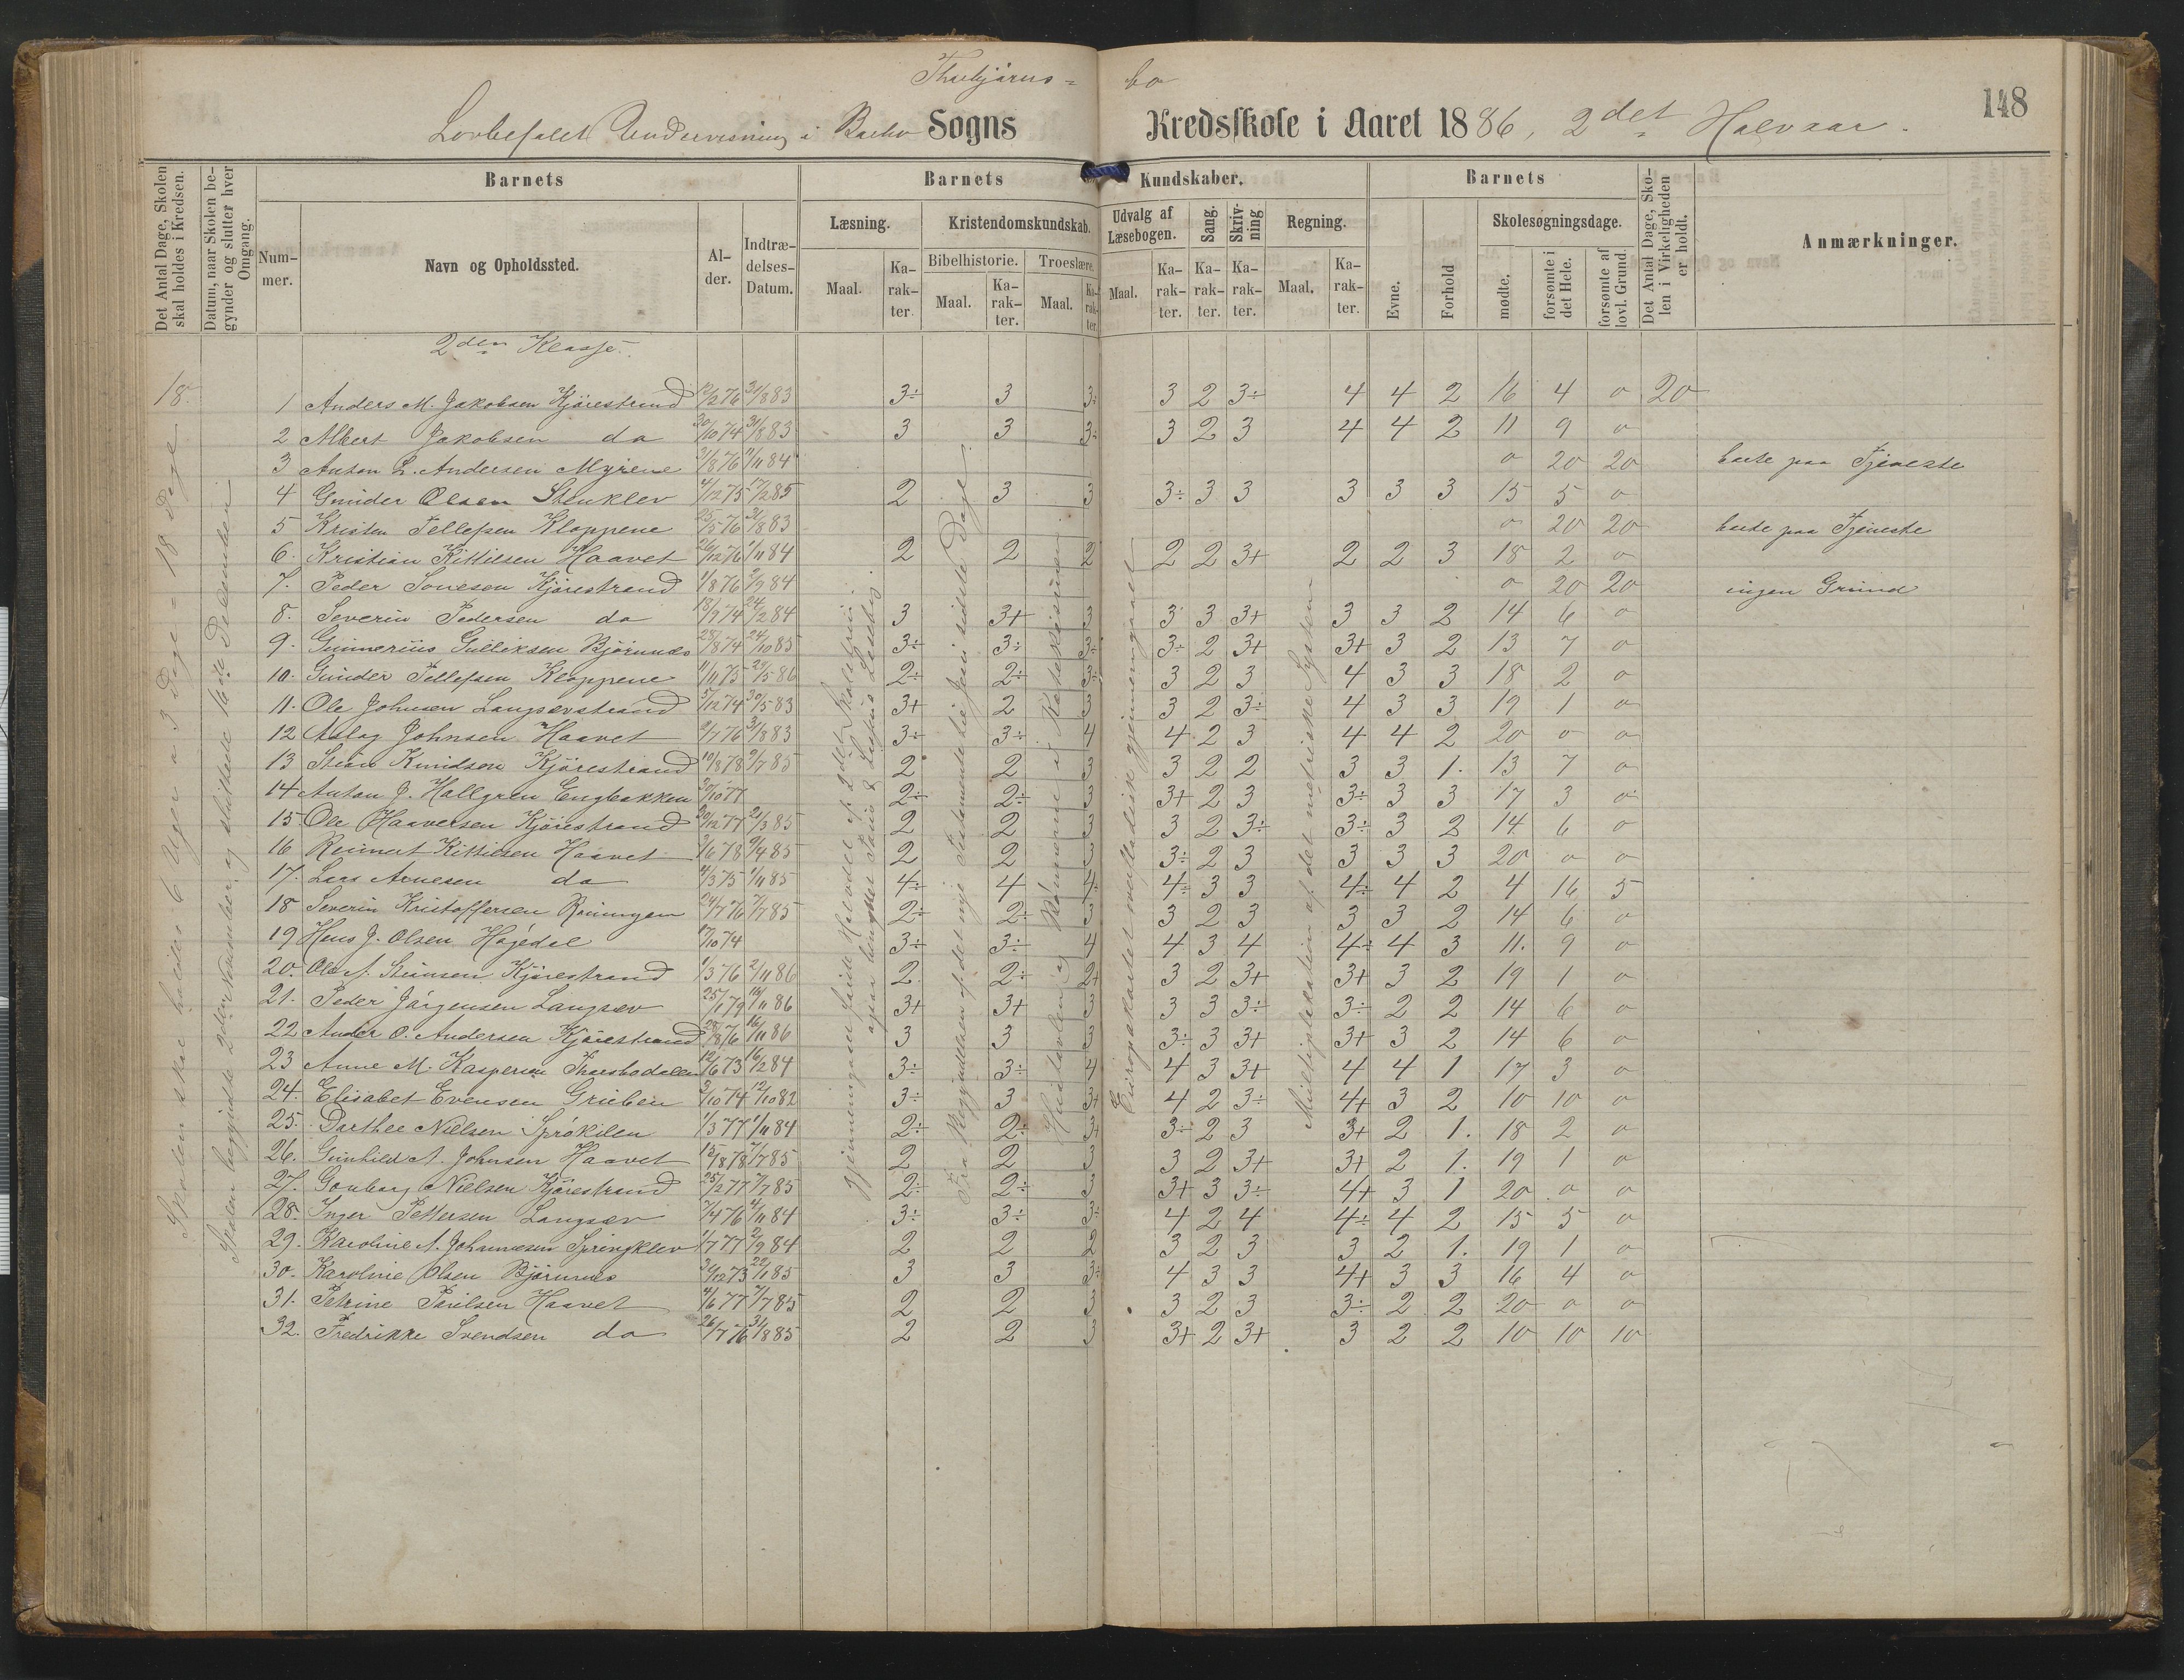 148
Lovbefalet Undervisning i Sogns Kredsskole i Aaret 1886, 2det Halvaar.
Det Antal Dage, Skolen skal holdes i Kredsen.
Datum, naar Skolen begynder og slutter hver Omgang.
Barnets
Nummer.
Navn og Opholdssted.
Alder.
Indtrædelses-Datum.
Barnets Kundskaber.
Læsning.
Maal.
Karakter.
Kristendomskundskab.
Bibelhistorie.
Maal.
Karakter.
Troeslære.
Maal.
Karakter.
Udvalg af Læsebogen.
Maal.
Karakter.
Sang.
Karakter.
Skrivning
Karakter.
Regning.
Maal.
Karakter.
Barnets
Evne.
Forhold
Skolesøgningsdage.
mødte.
forsømte i det Hele.
forsømte af lovl. Grund.
Det Antal Dage, Skolen i Virkeligheden er holdt.
Anmærkninger.
2den Klasse
18.
Skolen skal holdes 6 Uger a 3 Dage = 18 Dage
Skolen begyndte 2den November og sluttede 16de December
Fra Begyndelsen af det nye Testamente til Jesu sidste Dage.
Europakartet gjennemgaaet
Multiplikation af det metriske System
1 Anders M. Jakobsen Kjørestrand 12/2 76 31/8 83 3÷ 3 3÷ 3 2 3÷ 4 4 2 16 4 0 20
2 Albert Jakobsen do 20/10 74 31/8 83 3 3 3÷ 3 2 3 4 4 2 11 9 0
3 Anton L. Andersen Myrene 31/8 76 1/11 84 0 20 20 borte paa Tjeneste
4 Gunder Olsen Stenklev 4/12 75 17/2 85 2 3 3 3÷ 3 3 3 3 3 15 5 0
5 Kristen Tellefsen Kloppene 25/5 76 31/8 83 0 20 20 borte paa Tjeneste
6. Kristian Kittilsen Haavet 26/12 76 1/11 84 2 2 2 2 2 3+ 2 2 3 18 2 0
7. Peder Tonesen Kjørestrand 1/8 76 2/9 84 0 20 20 ingen Grund
8. Severin Pedersen do 18/9 74 24/2 84 3 3+ 3 3 3 3+ 3 3 2 14 6 0
9. Gunnerius Gulliksen Bjørnnes 28/8 74 24/10 85 3÷ 3÷ 3÷ 3÷ 2 3+ 3+ 3 2 13 7 0
10. Gunder Tellefsen Kloppene 11/11 75 25/5 86 2÷ 2÷ 3÷ 3 2 3 4 3 3 18 2 0
11. Ole Johnsen Langsævstrand 5/12 74 30/5 83 3+ 2 3 3 2 3÷ 4 3 3 19 1 0
12 Aslag Johnsen Haavet 9/7 76 31/8 83 3÷ 3÷ 4 4 2 3 4 4 2 20 0 0
13 Stian Knudsen Kjørestrand 10/8 78 9/7 85 2 2 3 3 2 2 3 3 1. 13 7 0
14 Anton J. Hallgren Engbakken 20/10 77 2÷ 2÷ 3 3+ 2 3 3÷ 3 3 17 3 0
15. Ole Haaversen Kjørestrand 20/12 77 21/3 85 2 2 3 3 2 3÷ 3÷ 3 2 14 6 0
16 Reinert Kittilsen Haavet 2/6 78 9/4 85 2 2 3 3÷ 2 3 3 3 3 20 0 0
17. Lars Arnesen do 4/3 75 1/11 85 4÷ 4 4÷ 4÷ 3 3 4÷ 4 2 4 16 5
18 Severin Kristoffersen Röningen 24/7 76 7/7 85 2÷ 2÷ 3 3 2 3 3 3 2 14 6 0
19 Hans J. Olsen Højedal 17/10 74 3÷ 3÷ 4 4 3 4 4÷ 4 3 11. 9 0
20. Ole A. Steinsen Kjørestrand 1/3 76 2/11 86 2 2÷ 2+ 3 2 3+ 3+ 3 2 19 1 0
21. Peder Jørgensen Langsæv 25/1 79 16/11 86 3+ 3+ 3 3 3 3÷ 3÷ 2 2 14 6 0
22 Ander O. Andersen Kjørestrand 28/8 76 16/11 86 3 3 3 3÷ 3 3+ 3+ 3 2 14 6 0
23 Anne M. Kaspersen 12/6 73 16/2 84 3÷ 3÷ 4 4 3 3+ 4 4 1 17 3 0
24. Elisabet Evensen Gruben 2/10 74 12/10 82 3÷ 3 3+ 4 2 3÷ 4+ 3 2 10 10 0
25. Dorthee Nielsen Sprøkilen 1/3 77 1/11 84 2÷ 2÷ 3+ 3÷ 2 3 3+ 2 1. 18 2 0
26. Gunhild A. Johnsen Haavet 15/8 78 7/7 85 2 2 3 3 2 3+ 3+ 2 1. 19 1 0
27. Gonborg Nielsen Kjørestrand 25/2 77 7/7 85 2÷ 2÷ 3 3+ 3 3÷ 4+ 3 1 20 0 0
28. Inger Pettersen Langsæv 2/4 76 4/11 84 3÷ 3÷ 3÷ 4 2 4 4÷ 4 2 15 5 0
29. Karoline A. Johannesen Springklev 1/7 77 2/9 84 2 2 2 3 2 3 3 2 1. 19 1 0
30. Karoline Olsen Bjørnnes 24/12 73 22/1 85 3 3 3÷ 4 3 3 4+ 3 3 16 4 0
31. Petrine Poulsen Haavet 4/6 77 7/7 85 2 2 3 3 2 3 3÷ 2 2 20 0 0
32. Fredrikke Svendsen do 26/7 76 31/8 85 2 2 3 3+ 2 3+ 3 2 2 10 10 10